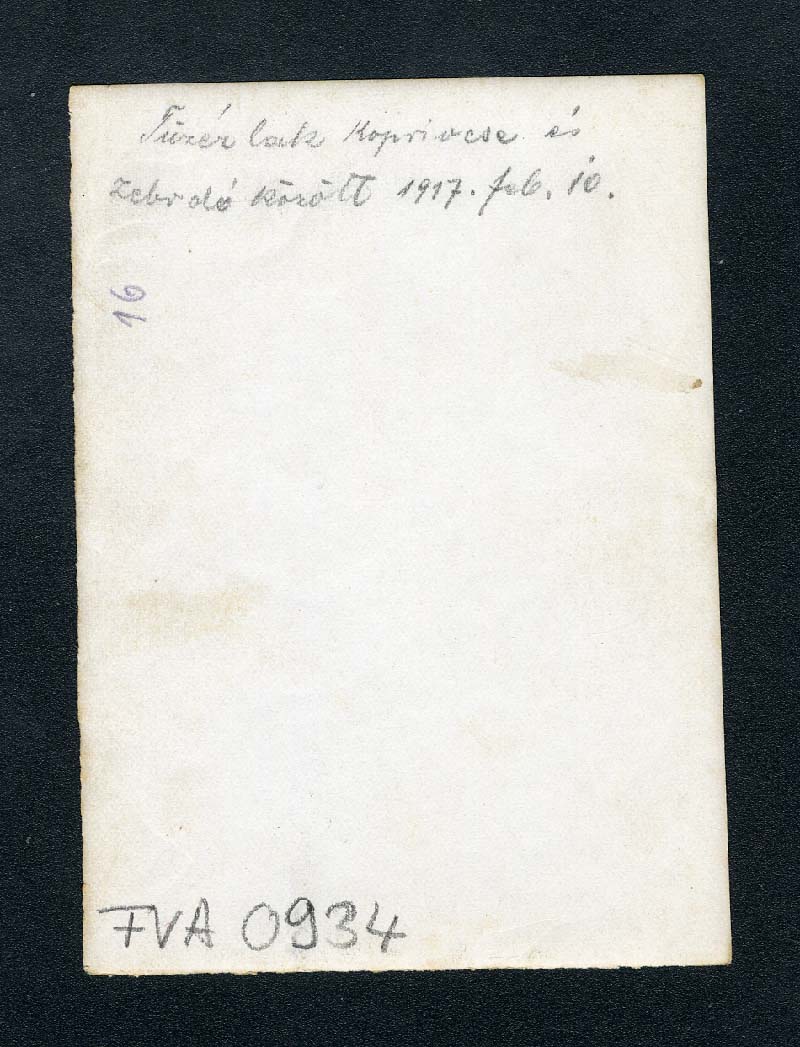 Tüzér lak Koprivcse és
Zebrdó között 1917. feb. 10.
16
FVA 0934